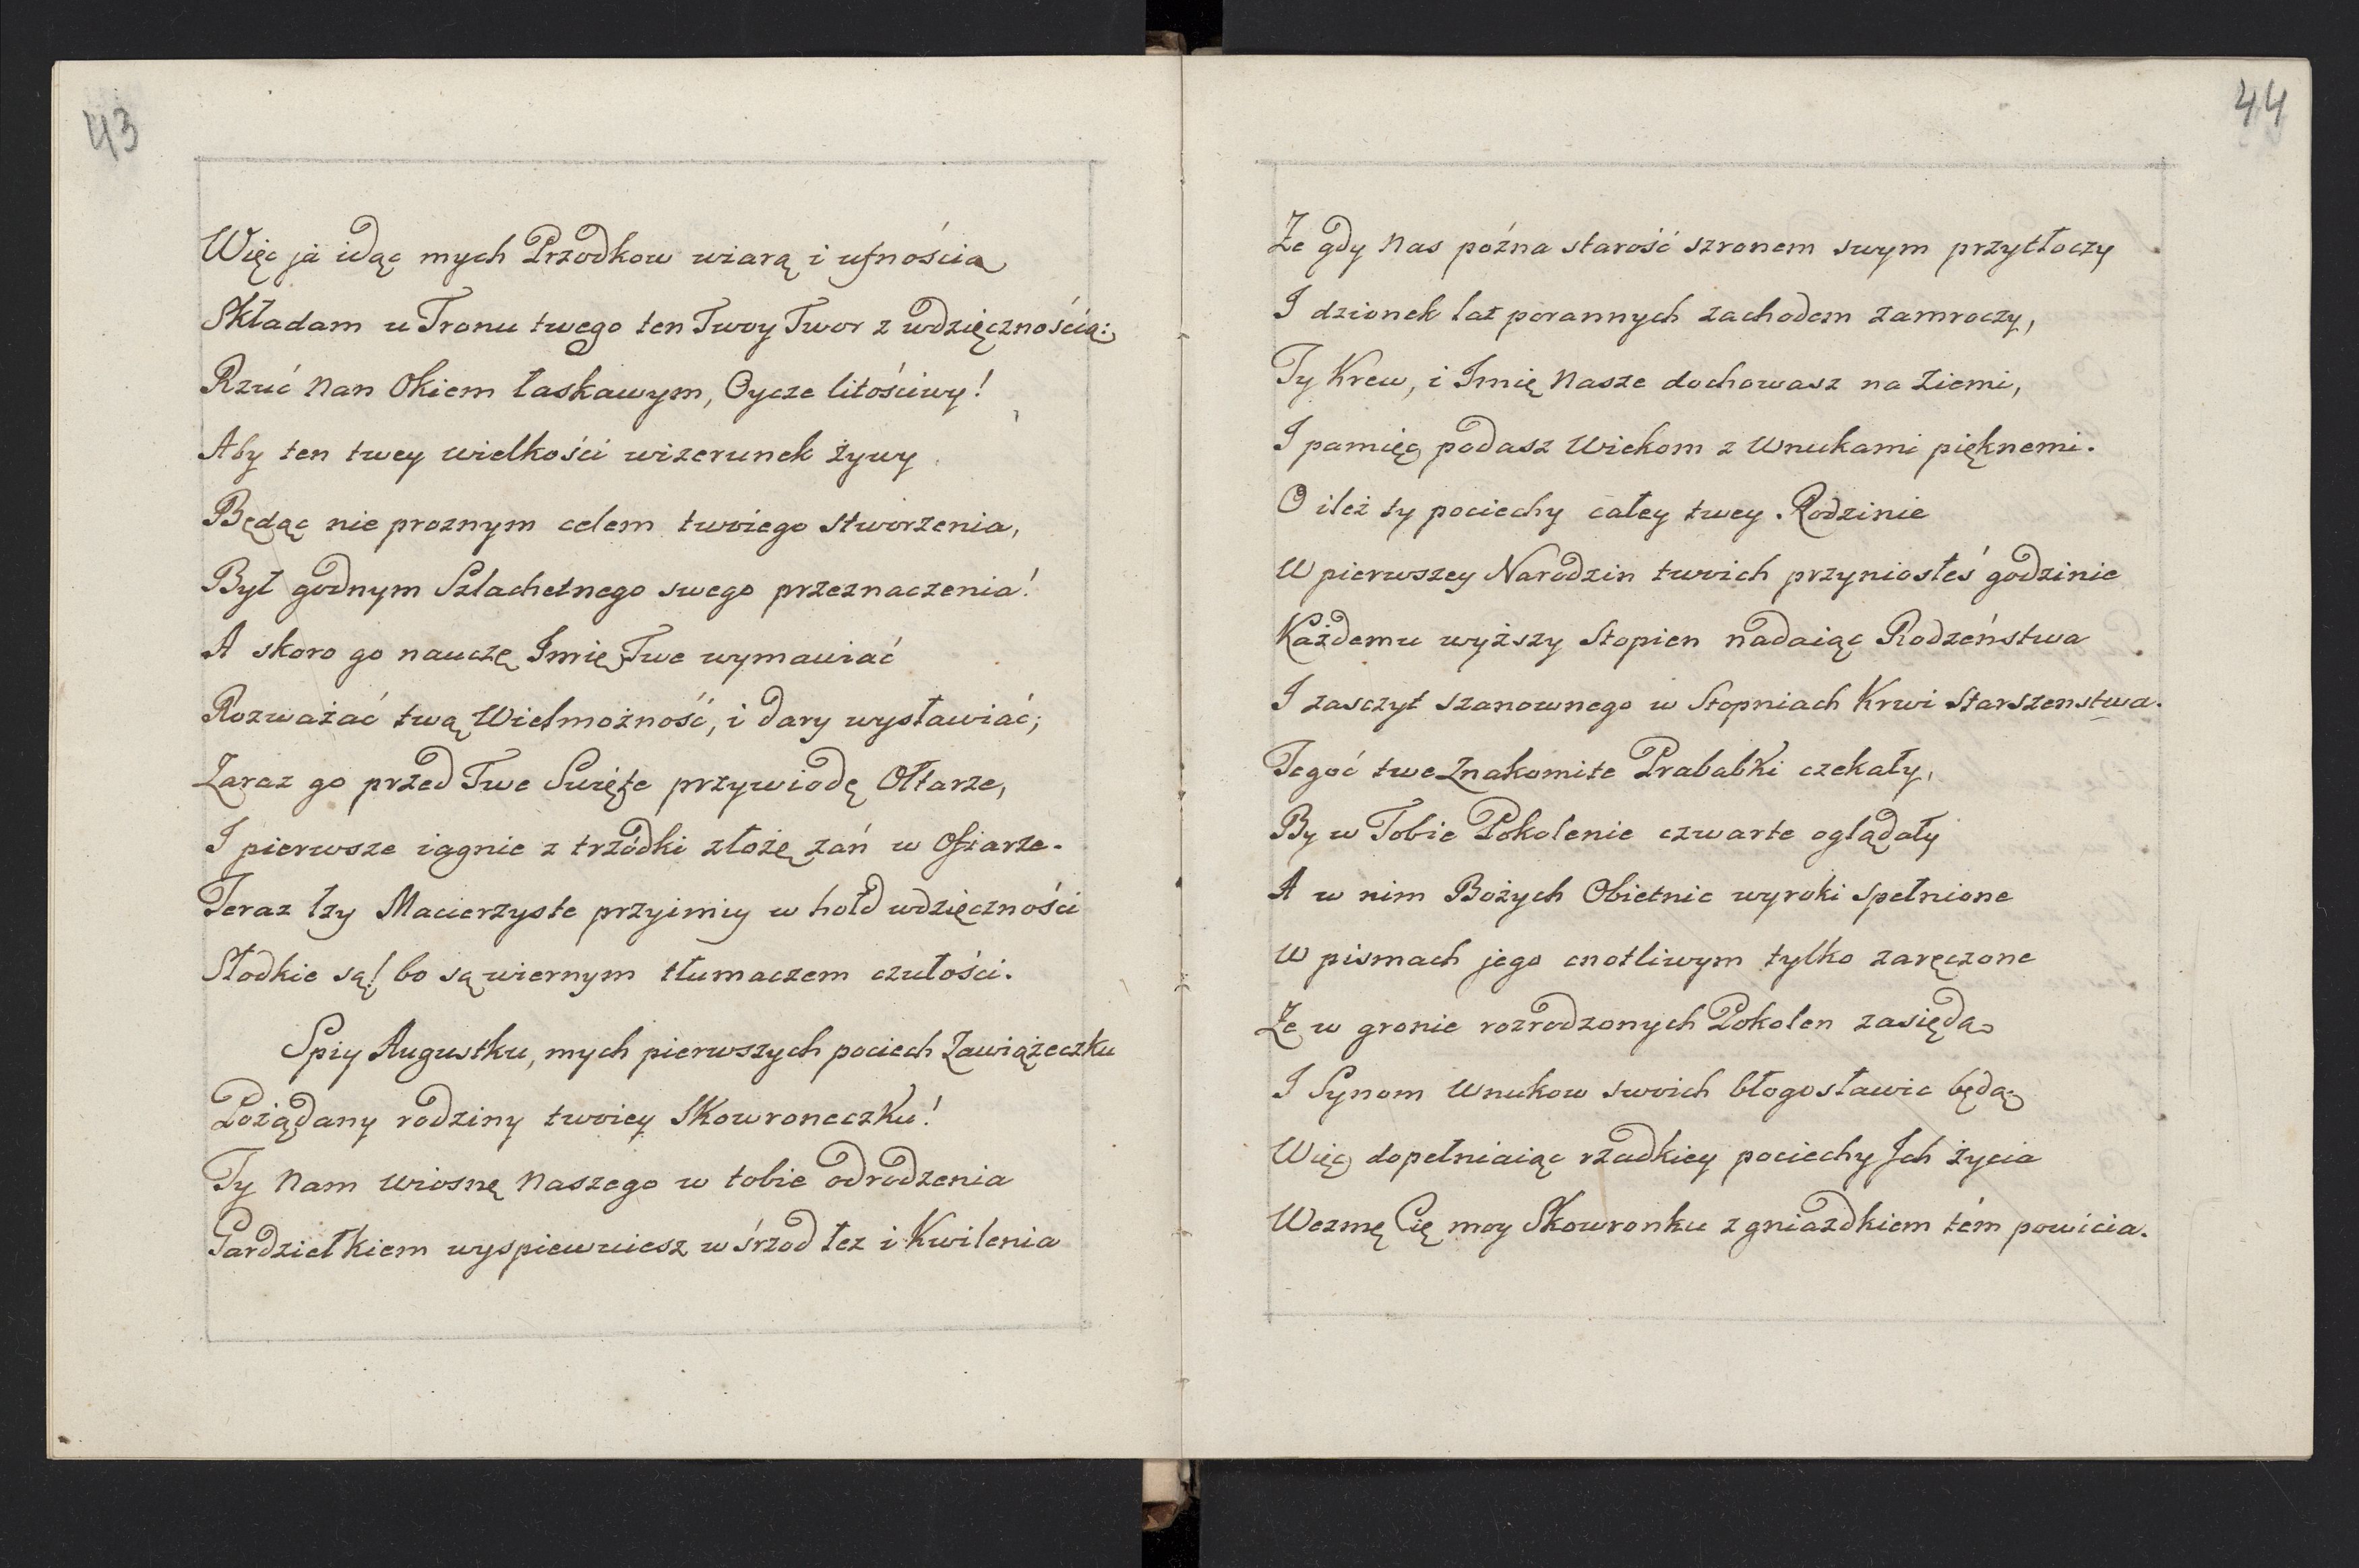 43
Więc ja idąc mych Przodkow wiarą i ufnością
Składam u Tronu twego ten Twoy Twor z wdzięcznością:
Rzuć Nan Okiem łaskawym, Oycze litościwy!
Aby ten twey wielkości wizerunek żywy
Będąc nie proznym celem twoiego stworzenia,
Był godnym Szlachetnego swego przeznaczenia!
A skoro go nauczę Imię Twe wymawiać
Rozważać twą Wielmożność, i dary wysławiać;
Zaraz go przed Twe Święte przywiodę Ołtarze,
I pierwsze iagnie z trzódki złożę zań w Ofiarze.
Teraz łzy Macierzyste przyimiy w hołd wdzięczności
Słodkie są! bo są wiernym tłumaczem czułości.
Spiy Augustku, mych pierwszych pociech Zawiążeczku
Pożądany rodziny twoiey Skowroneczku!
Ty Nam wiosnę Naszego w tobie odrodzenia
Gardziełkiem wyspiewuiesz w śrzod łez i Kwilenia
44
Że gdy Nas poźna starość szronem swym przytłoczy
I dzionek lat porannych zachodem zamroczy,
Ty Krew, i Imię Nasze dochowasz na Ziemi,
I pamięć podasz Wiekom z Wnukami pięknemi.
O ileż ty pociechy całey twey Rodzinie
W pierwszey Narodzin twoich przyniosłeś godzinie
Każdemu wyższy Stopien nadaiąc Rodzeństwa
I zasczyt szanownego w Stopniach Krwi Starszenstwa.
Tegoć twe Znakomite Prababki czekały,
By w Tobie Pokolenie czwarte oglądały
A w nim Bożych Obietnic wyroki spełnione
W pismach jego cnotliwym tylko zaręczone
Że w gronie rozrodzonych Pokolen zasiędą
I Synom Wnukow swoich błogosławic będą
Więc dopełniaiąc rzadkiey pociechy Ich życia
Wezmę Cię moy Skowronku z gniazdkiem tém powicia.